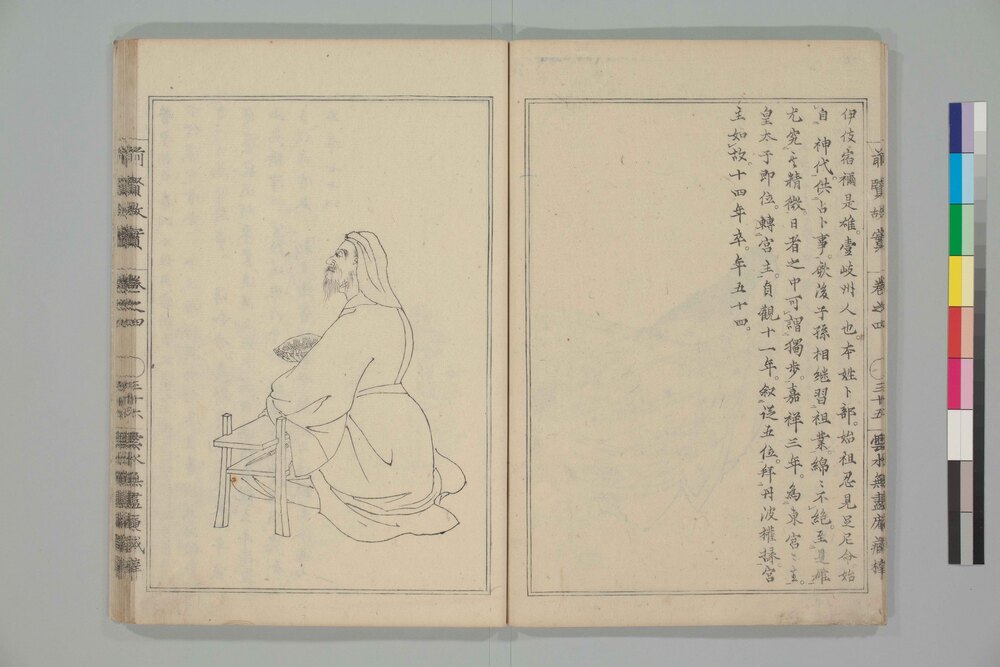 伊伎宿禰是雄。壹岐州人也。本姓卜部。始祖忍見足尼命始
自　神代。供占卜事。厥後子孫相繼習祖業。綿〻不絶。至是雄
尤究其精微。日者之中可謂獨步。嘉祥三年。為東宮〻主。
皇太子即位。轉宮主。貞觀十一年。叙従五位。拜丹波權掾宮
主如故。十四年卒。年五十四。
前賢故實　卷之四　三十五　雲水無盡庵藏梓
前賢故實　卷之四　三十六　雲水無盡庵藏梓